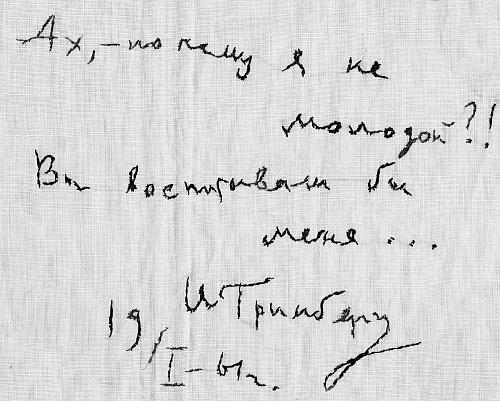 Ах, – почему я не
молодой?!
Вы воспитывали бы
меня ...
И Гринберг
19/I–61г.